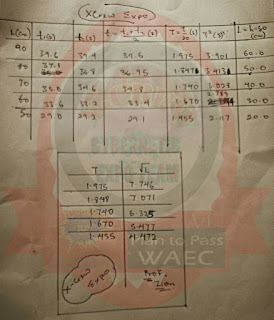 X-Crew Expo
h(cm) t₁(s) t₂(s) t = t₁+t₂/2 (s) T = t/20 (s) T²(s²) L = h-30 (cm)
90 39.6 39.4 39.5 1.975 3.901 60.0
80 37.1 36.8 36.95 1.848 3.413 50.0
70 35.0 34.6 34.8 1.740 3.028 40.0
60 33.6 33.2 33.4 1.670 30.0
50 29.0 29.2 29.1 1.455 2.117 20.0
T √L
1.975 7.746
1.848 7.071
1.740 6.325
1.670 5.477
1.455 4.472
X-Crew Expo
Prof.
Plan to Pass
WAEC